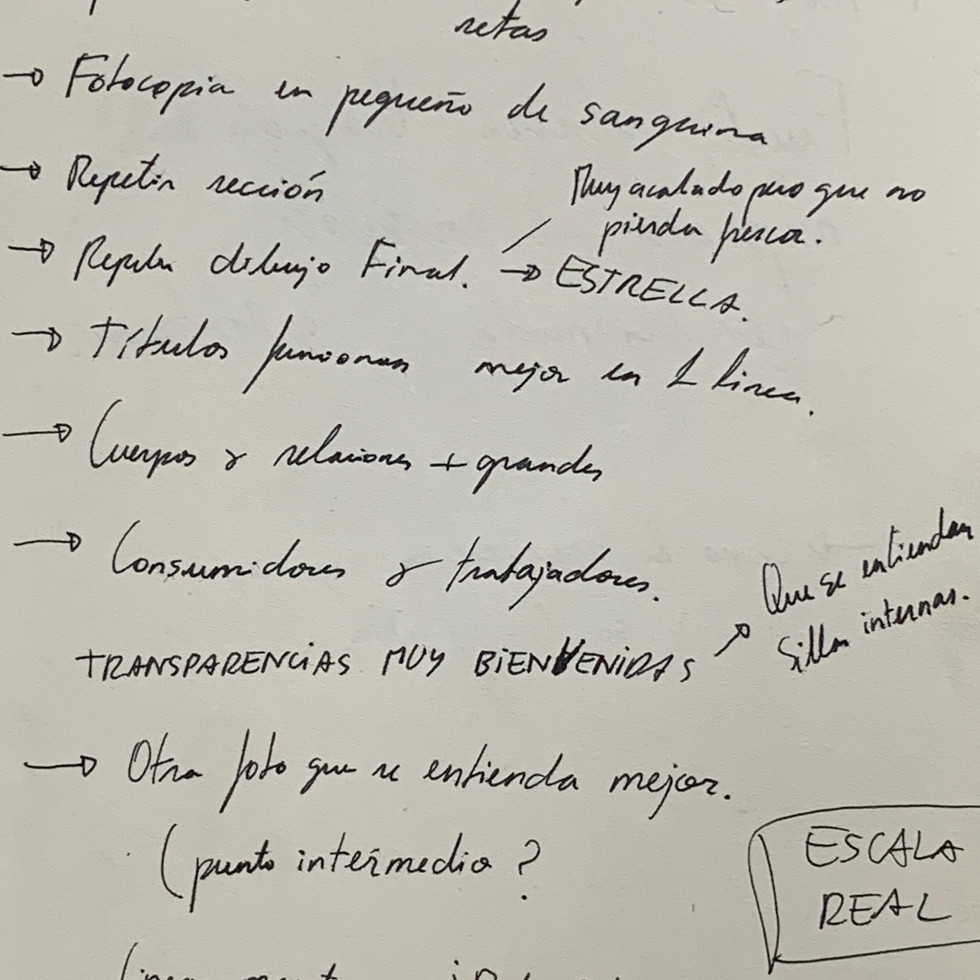 retas
→ Fotocopia en pequeño de sanguina
→ Repetir sección
Muy acabado pero que no
pierda fuerza.
→ Repetir dibujo Final. → ESTRELLA.
→ Títulos funcionan mejor en 1 línea.
→ Cuerpos y relaciones + grandes
→ Consumidores y trabajadores.
Que se entiendan
sillas internas.
TRANSPARENCIAS MUY BIENVENIDAS
→ Otra foto que se entienda mejor.
(punto intermedio ?
ESCALA
REAL